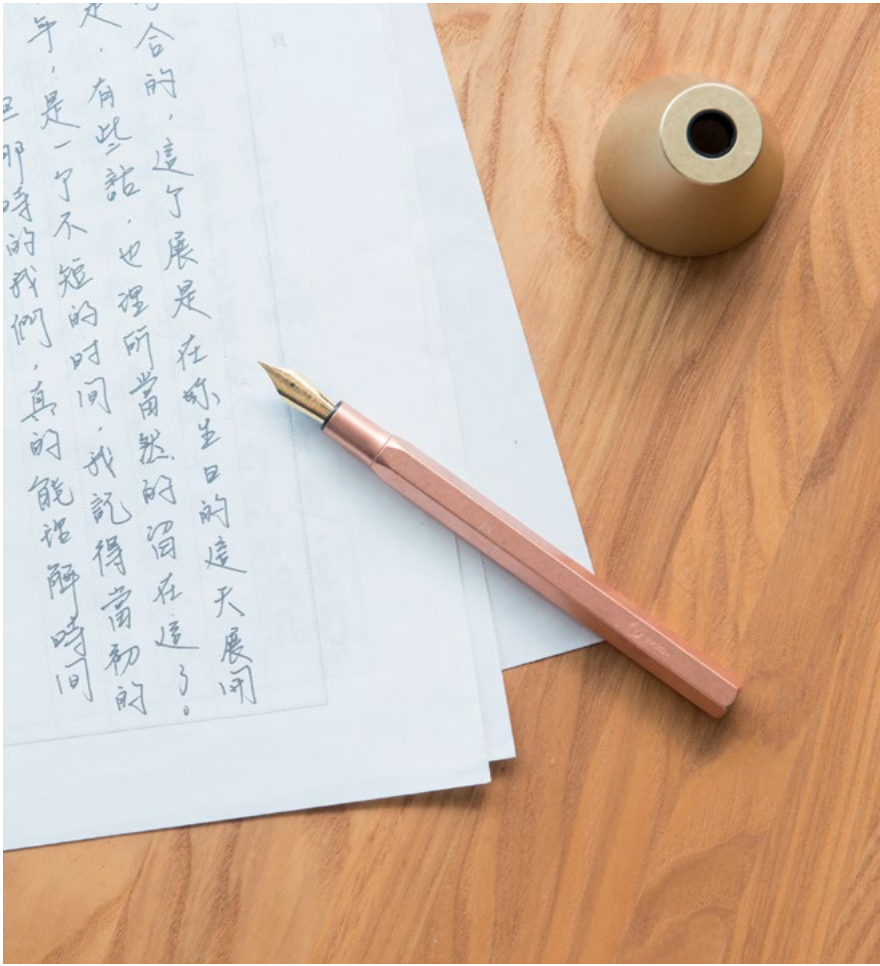 合的，這个展是在妳生日的這天展開
是，有些話，也理所當然的留在這了。
年，是一个不短的时间，我記得當初的
那時的我們，真的能理解時间